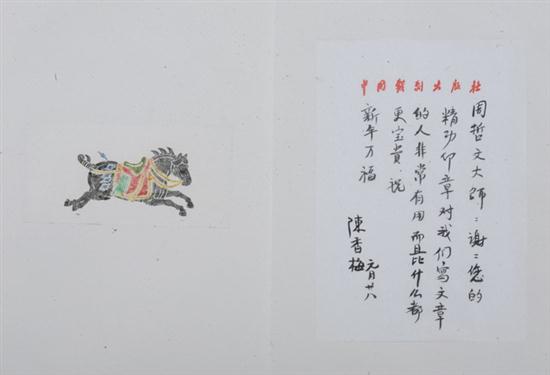 中国戏剧出版社
周哲文大师：谢谢您的
精功印章对我们写文章
的人非常有用而且比什么都
更宝贵.祝
新年万福
陳香梅
元月廿八